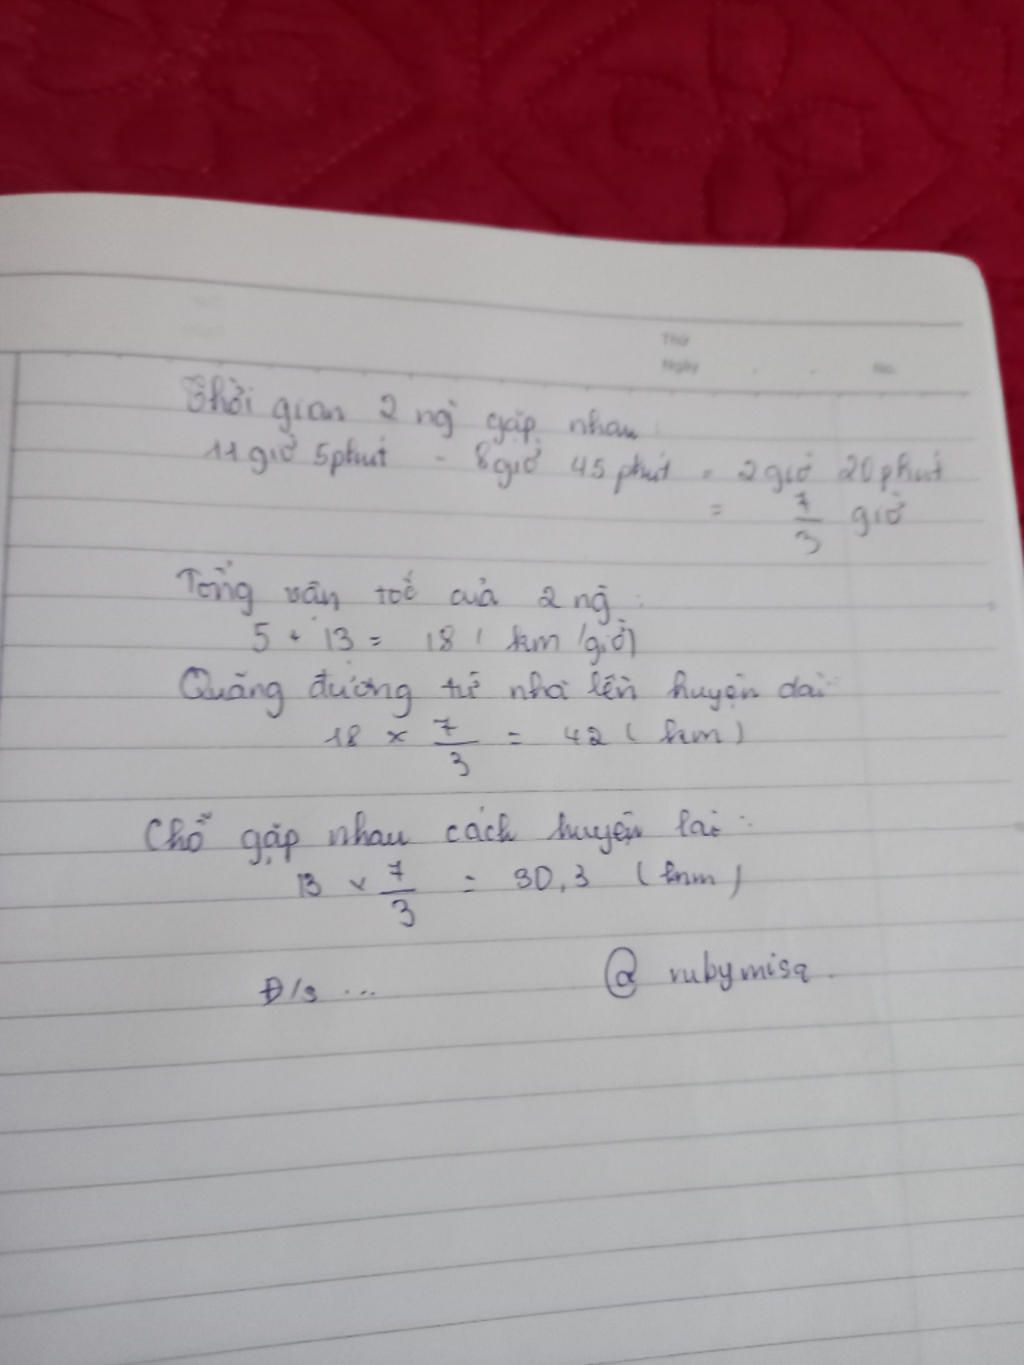 Thứ
Ngày No.
Thời gian 2 ng gặp nhau:
11 giờ 5 phút - 8 giờ 45 phút = 2 giờ 20 phút
= 7/3 giờ
Tổng vận tốc của 2 ng:
5 + 13 = 18 (km/giờ)
Quãng đường từ nhà lên huyện dài:
18 x 7/3 = 42 (km)
Chỗ gặp nhau cách huyện lại:
13 x 7/3 = 30,3 (km)
Đ/s ... @ rubymisa.